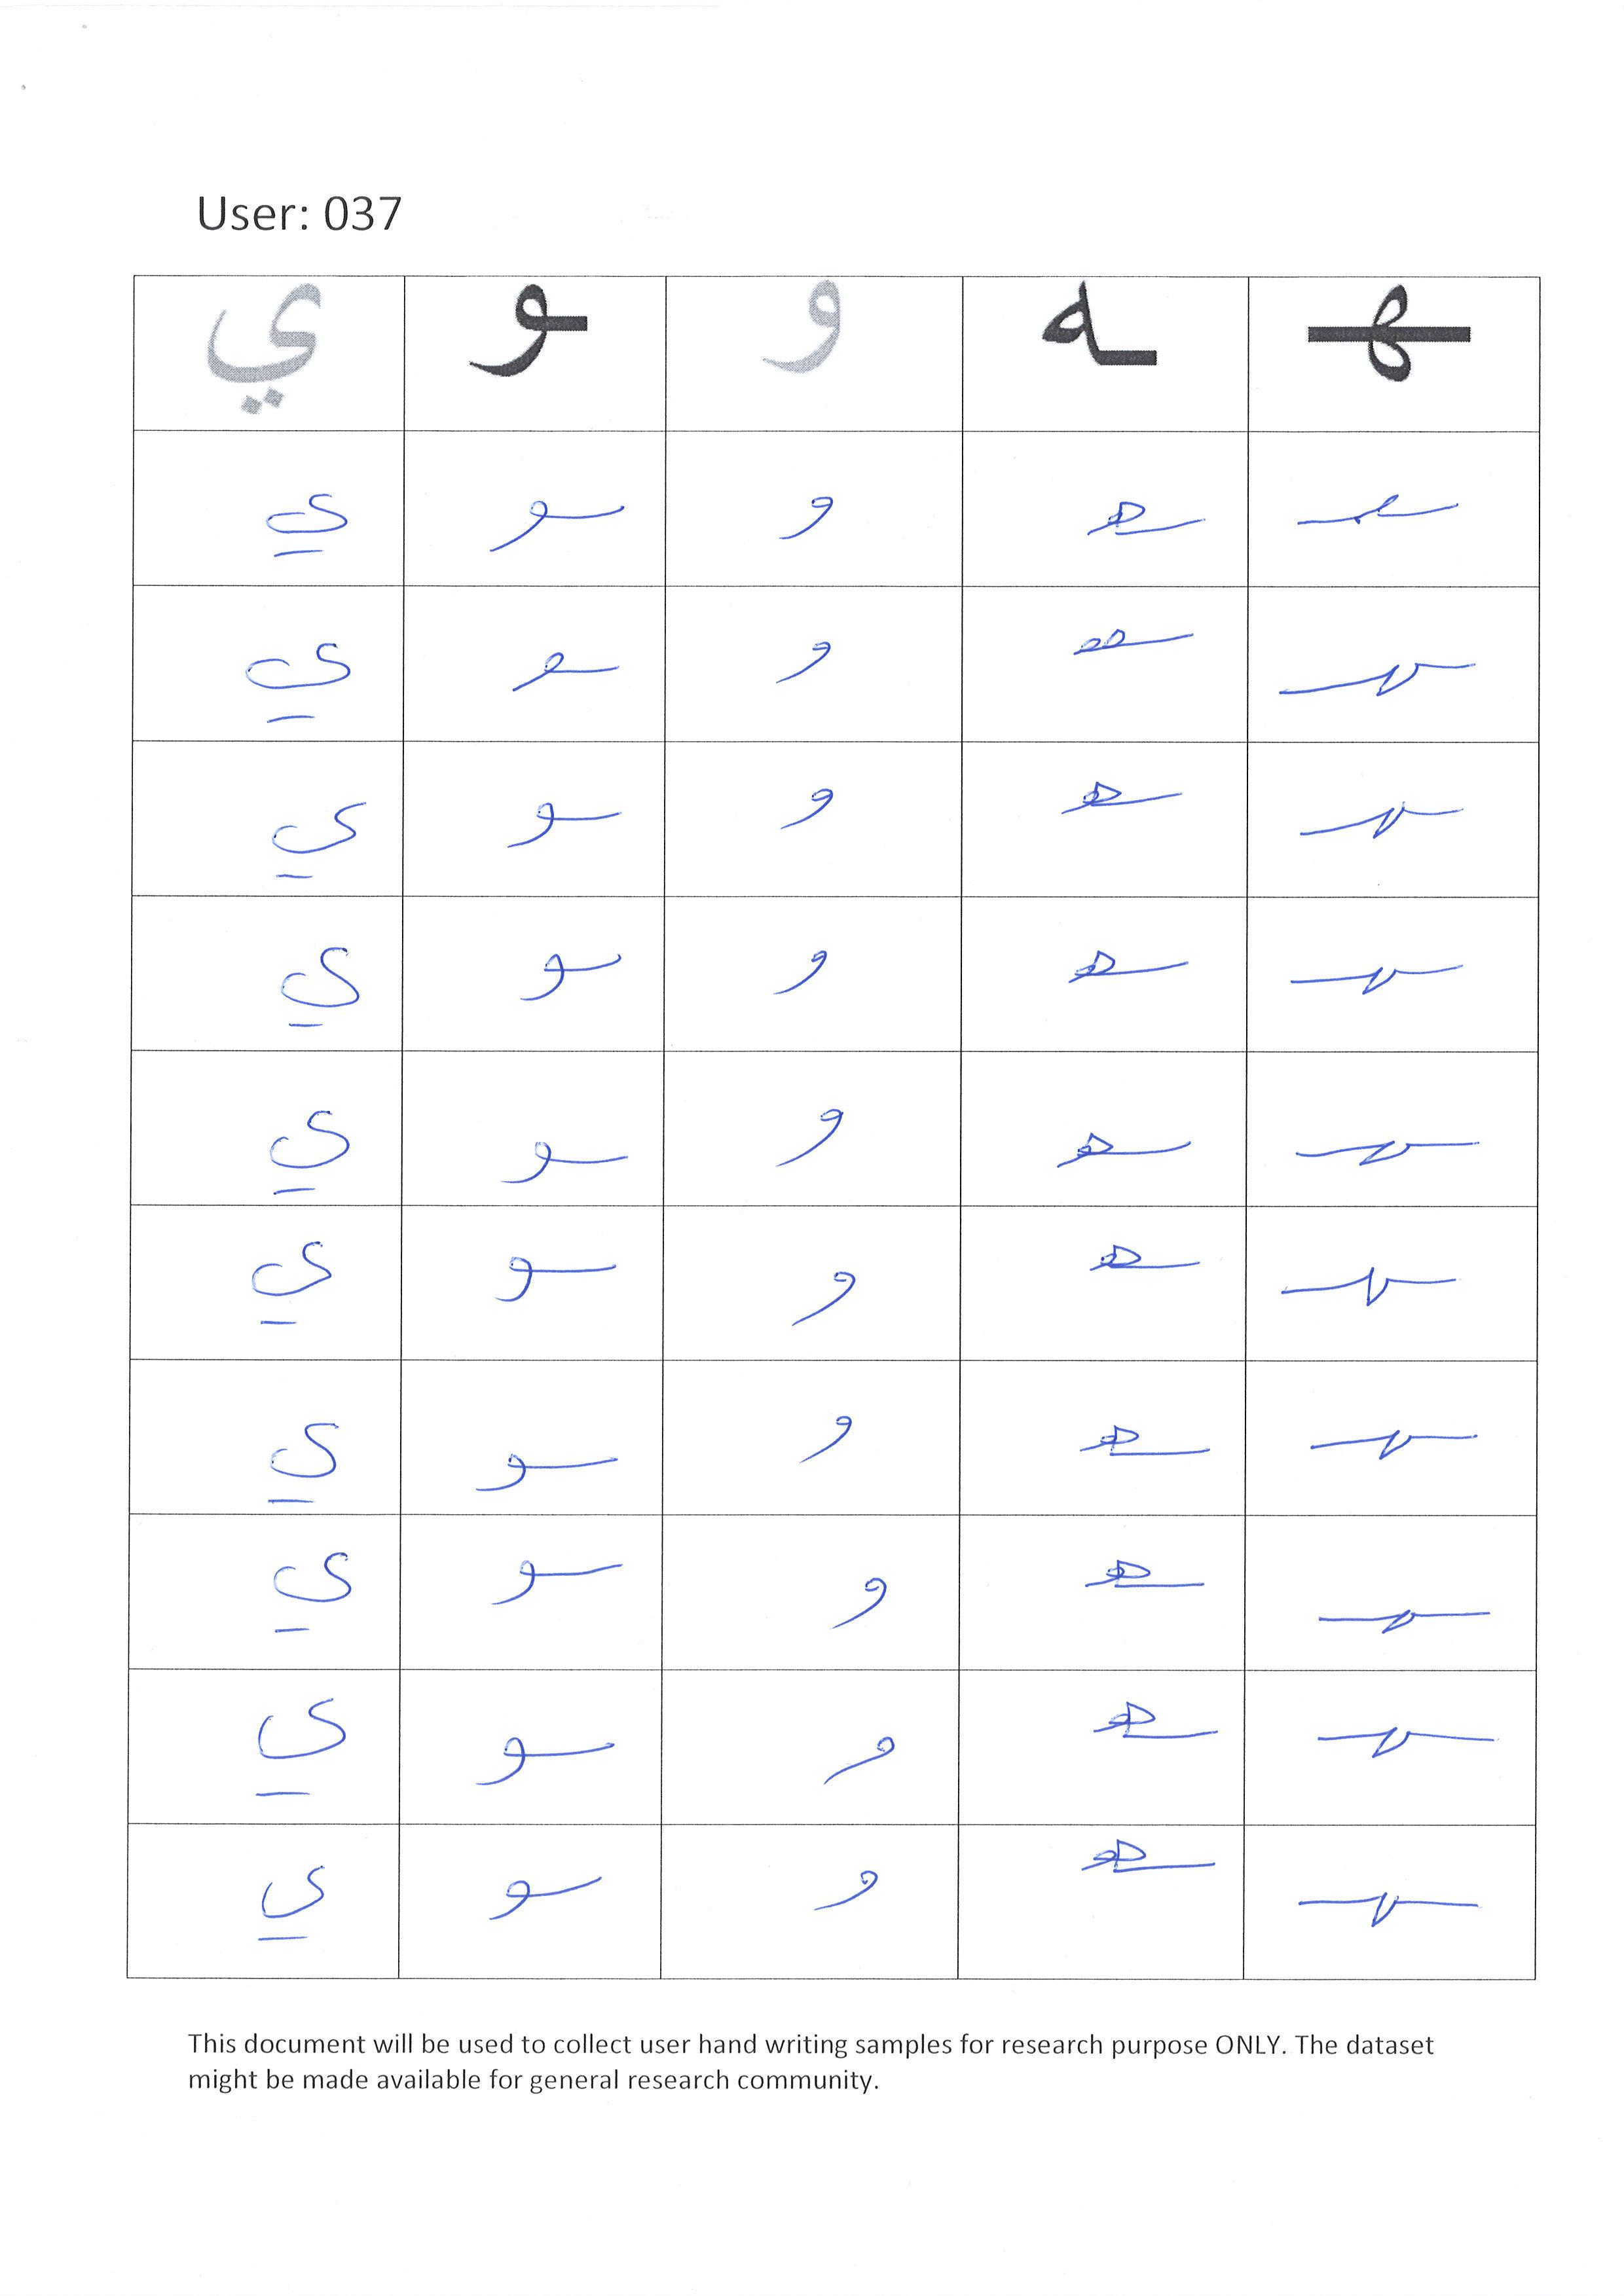 User: 037
ي ـو و ـه ـهـ
ي ـو و ـه ـهـ
ي ـو و ـه ـهـ
ي ـو و ـه ـهـ
ي ـو و ـه ـهـ
ي ـو و ـه ـهـ
ي ـو و ـه ـهـ
ي ـو و ـه ـهـ
ي ـو و ـه ـهـ
ي ـو و ـه ـهـ
ي ـو و ـه ـهـ
This document will be used to collect user hand writing samples for research purpose ONLY. The dataset
might be made available for general research community.